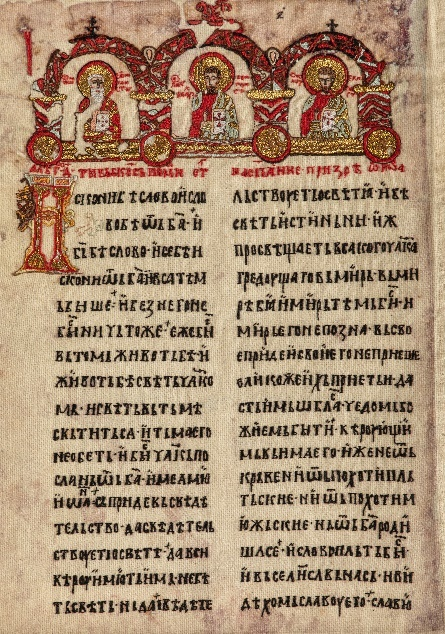 искони бѣ слово и сло
во бѣ ѿ ба҃· и
бь҃ бѣ слово· и се бѣ и
скони ѿ ба҃ и вса тѣм
ь быше· и без него не
бы҃ ничьтоже· еже бы҃
вь томь животь бѣ· и
животь бѣ свѣть чл҃ко
мь· и свѣть вь тьмѣ
свьтить са· и тьма его
не обеть· и бы҃ чл҃кь по
слань ѿ ба҃· име ѥмоу
иѡа҃нъ сь приде вь свѣдѣ
тельство· да свѣдѣтель
ствоуеть о свѣтѣ· да вси
вѣроу имоуть имь· не бѣ
ть свѣть· нь да свѣдѣте
льствоуеть о свѣтѣ· и бѣ
свѣть истиньны· иж
просвѣщаеть всакого чл҃ка
гредоуща го вь мирь· вь ми
рѣ бѣ и мирь тѣмь бы҃· и
мирь его не позна· вь сво
е приде и свои его не приеше
елико же ихь приеть и· да
сть имь ѡбла҃· чедомь бо
жиемь быти· вѣроующи
мь вь име его· иже не ѿь
крьве ни ѿ похоти пль
тьские· ни ѿь похоти м
оужьские· нь ѿ ба҃ роди
ше се· и слово пльть бы҃·
и вьсели се вь нась· и ви
дѣхомь славоу его· славоу